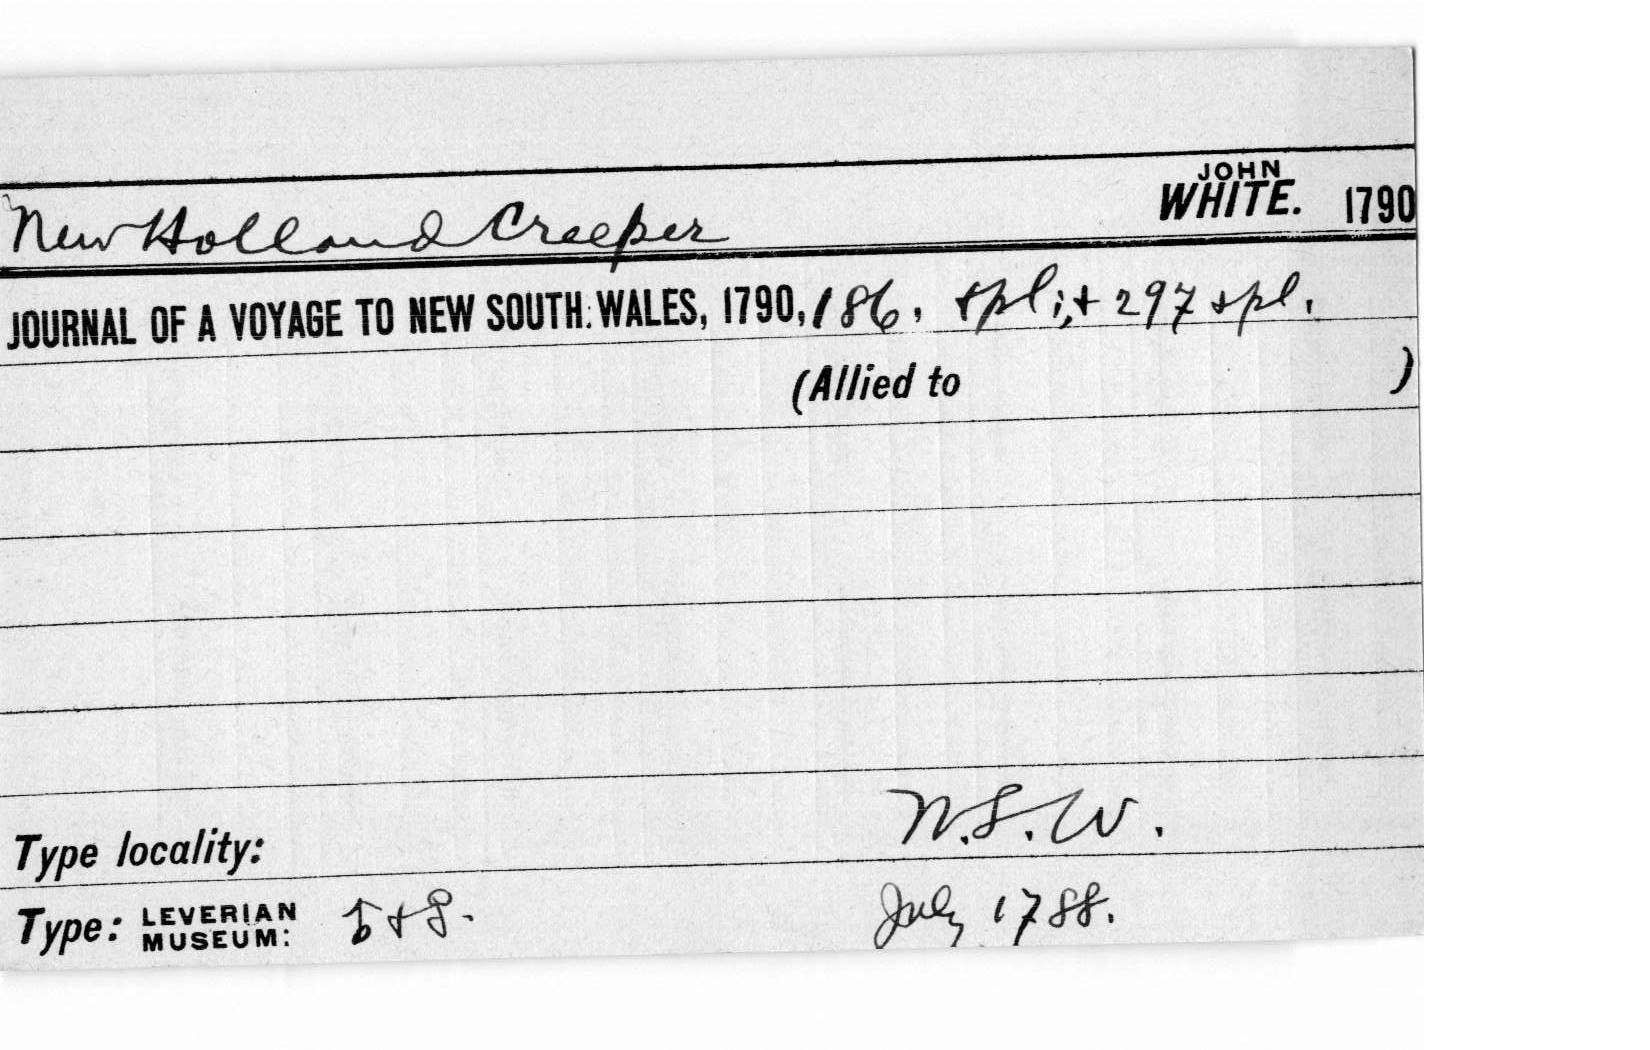 New Holland Creeper JOHN WHITE. 1790
JOURNAL OF A VOYAGE TO NEW SOUTH WALES, 1790, 186, + pl.; + 297 + pl.
(Allied to )
Type locality: N.S.W.
Type: LEVERIAN MUSEUM: July 1788.